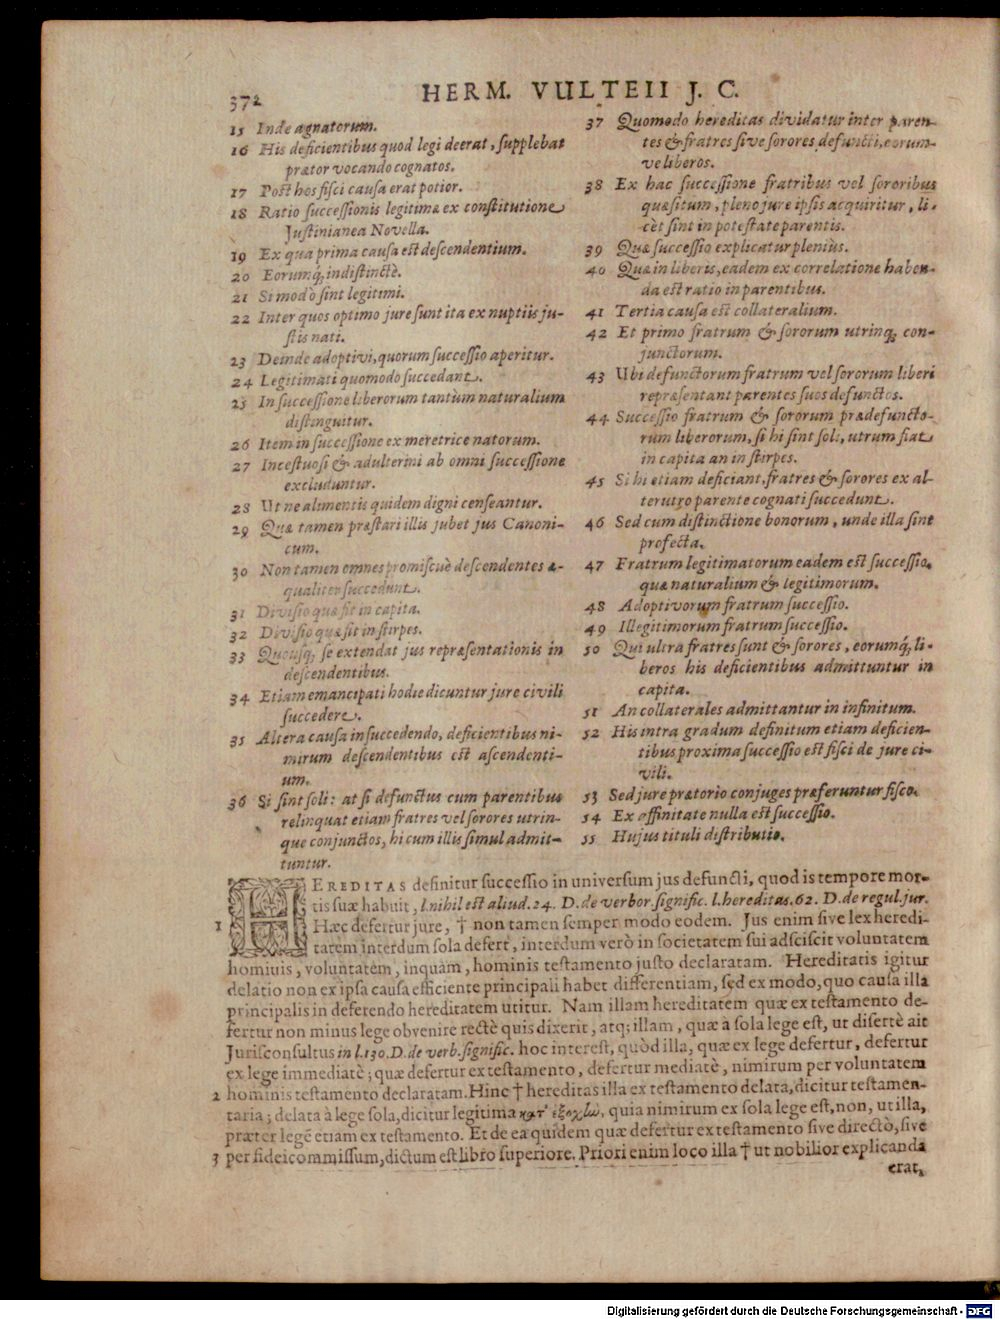 372
HERM. VULTEII J. C.
15 Inde agnatorum.
16 His deficientibus quod legi deerat, supplebat
prætor vocando cognatos.
17 Post hos fisci causa erat potior.
18 Ratio successionis legitimæ ex constitutione
Justinianea Novella.
19 Ex qua prima causa est descendentium.
20 Eorumq́; indistinctè.
21 Si modò sint legitimi.
22 Inter quos optimo jure sunt ita ex nuptiis ju-
stis nati.
23 Deinde adoptivi, quorum successio aperitur.
24 Legitimati quomodo succedant.
25 In successione liberorum tantùm naturalium
distinguitur.
26 Item in successione ex meretrice natorum.
27 Incestuosi & adulterini ab omni successione
excluduntur.
28 Ut ne alimentis quidem digni censeantur.
29 Quæ tamen præstari illis jubet jus Canoni-
cum.
30 Non tamen omnes promiscuè descendentes æ-
qualiter succedunt.
31 Divisio quæ fit in capita.
32 Divisio quæ fit in stirpes.
33 Quousq; se extendat jus repræsentationis in
descendentibus.
34 Etiam emancipati hodie dicuntur jure civili
succedere.
35 Altera causa in succedendo, deficientibus ni-
mirum descendentibus est ascendenti-
um.
36 Si sint soli: at si defunctus cum parentibus
relinquat etiam fratres vel sorores utrin-
que conjunctos, hi cum illis simul admit-
tuntur.
37 Quomodo hereditas dividatur inter paren-
tes & fratres sive sorores defuncti, eorum-
ve liberos.
38 Ex hac successione fratribus vel sororibus
quæsitum, pleno jure ipsis acquiritur, li-
cèt sint in potestate parentis.
39 Quæ successio explicatur pleniùs.
40 Quæ in liberis, eadem ex correlatione haben-
da est ratio in parentibus.
41 Tertia causa est collateralium.
42 Et primo fratrum & sororum utrinq; con-
junctorum.
43 Ubi defunctorum fratrum vel sororum liberi
repræsentant parentes suos defunctos.
44 Successio fratrum & sororum prædefuncto-
rum liberorum, si hi sint soli, utrum fiat
in capita an in stirpes.
45 Si hi etiam deficiant, fratres & sorores ex al-
terutro parente cognati succedunt.
46 Sed cum distinctione bonorum, unde illa sint
profecta.
47 Fratrum legitimatorum eadem est successio,
quæ naturalium & legitimorum.
48 Adoptivorum fratrum successio.
49 Illegitimorum fratrum successio.
50 Qui ultra fratres sunt & sorores, eorumq́; li-
beros his deficientibus admittuntur in
capita.
51 An collaterales admittantur in infinitum.
52 His intra gradum definitum etiam deficien-
tibus proxima successio est fisci de jure ci-
vili.
53 Sed jure prætorio conjuges præferuntur fisco.
54 Ex affinitate nulla est successio.
55 Hujus tituli distributio.
HEREDITAS definitur successio in universum jus defuncti, quod is tempore mor-
tis suæ habuit, l. nihil est aliud. 24. D. de verbor. signific. l. hereditas. 62. D. de regul. jur.
1 Hæc defertur jure, † non tamen semper modo eodem. Jus enim sive lex heredi-
tatem interdum sola defert, interdum verò in societatem sui adsciscit voluntatem
hominis, voluntatem, inquam, hominis testamento justo declaratam. Hereditatis igitur
delatio non ex ipsa causa efficiente principali habet differentiam, sed ex modo, quo causa illa
principalis in deferendo hereditatem utitur. Nam illam hereditatem quæ ex testamento de-
fertur non minus lege obvenire rectè quis dixerit, atq; illam, quæ à sola lege est, ut disertè ait
Jurisconsultus in l. 130. D. de verb. signific. hoc interest, quòd illa, quæ ex lege defertur, defertur
ex lege immediatè; quæ defertur ex testamento, defertur mediatè, nimirum per voluntatem
2 hominis testamento declaratam. Hinc † hereditas illa ex testamento delata, dicitur testamen-
taria; delata à lege sola, dicitur legitima κατ' ἐξοχὼ, quia nimirum ex sola lege est, non, ut illa,
præter legē etiam ex testamento. Et de ea quidem quæ defertur ex testamento sive directò, sive
3 per fideicommissum, dictum est libro superiore. Priori enim loco illa † ut nobilior explicanda
erat,
Digitalisierung gefördert durch die Deutsche Forschungsgemeinschaft - DFG